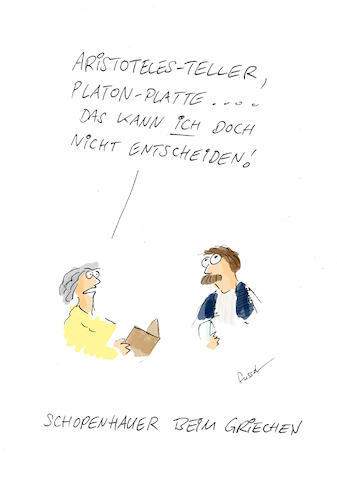 ARISTOTELES-TELLER,
PLATON-PLATTE.....
DAS KANN ICH DOCH
NICHT ENTSCHEIDEN!
SCHOPENHAUER BEIM GRIECHEN